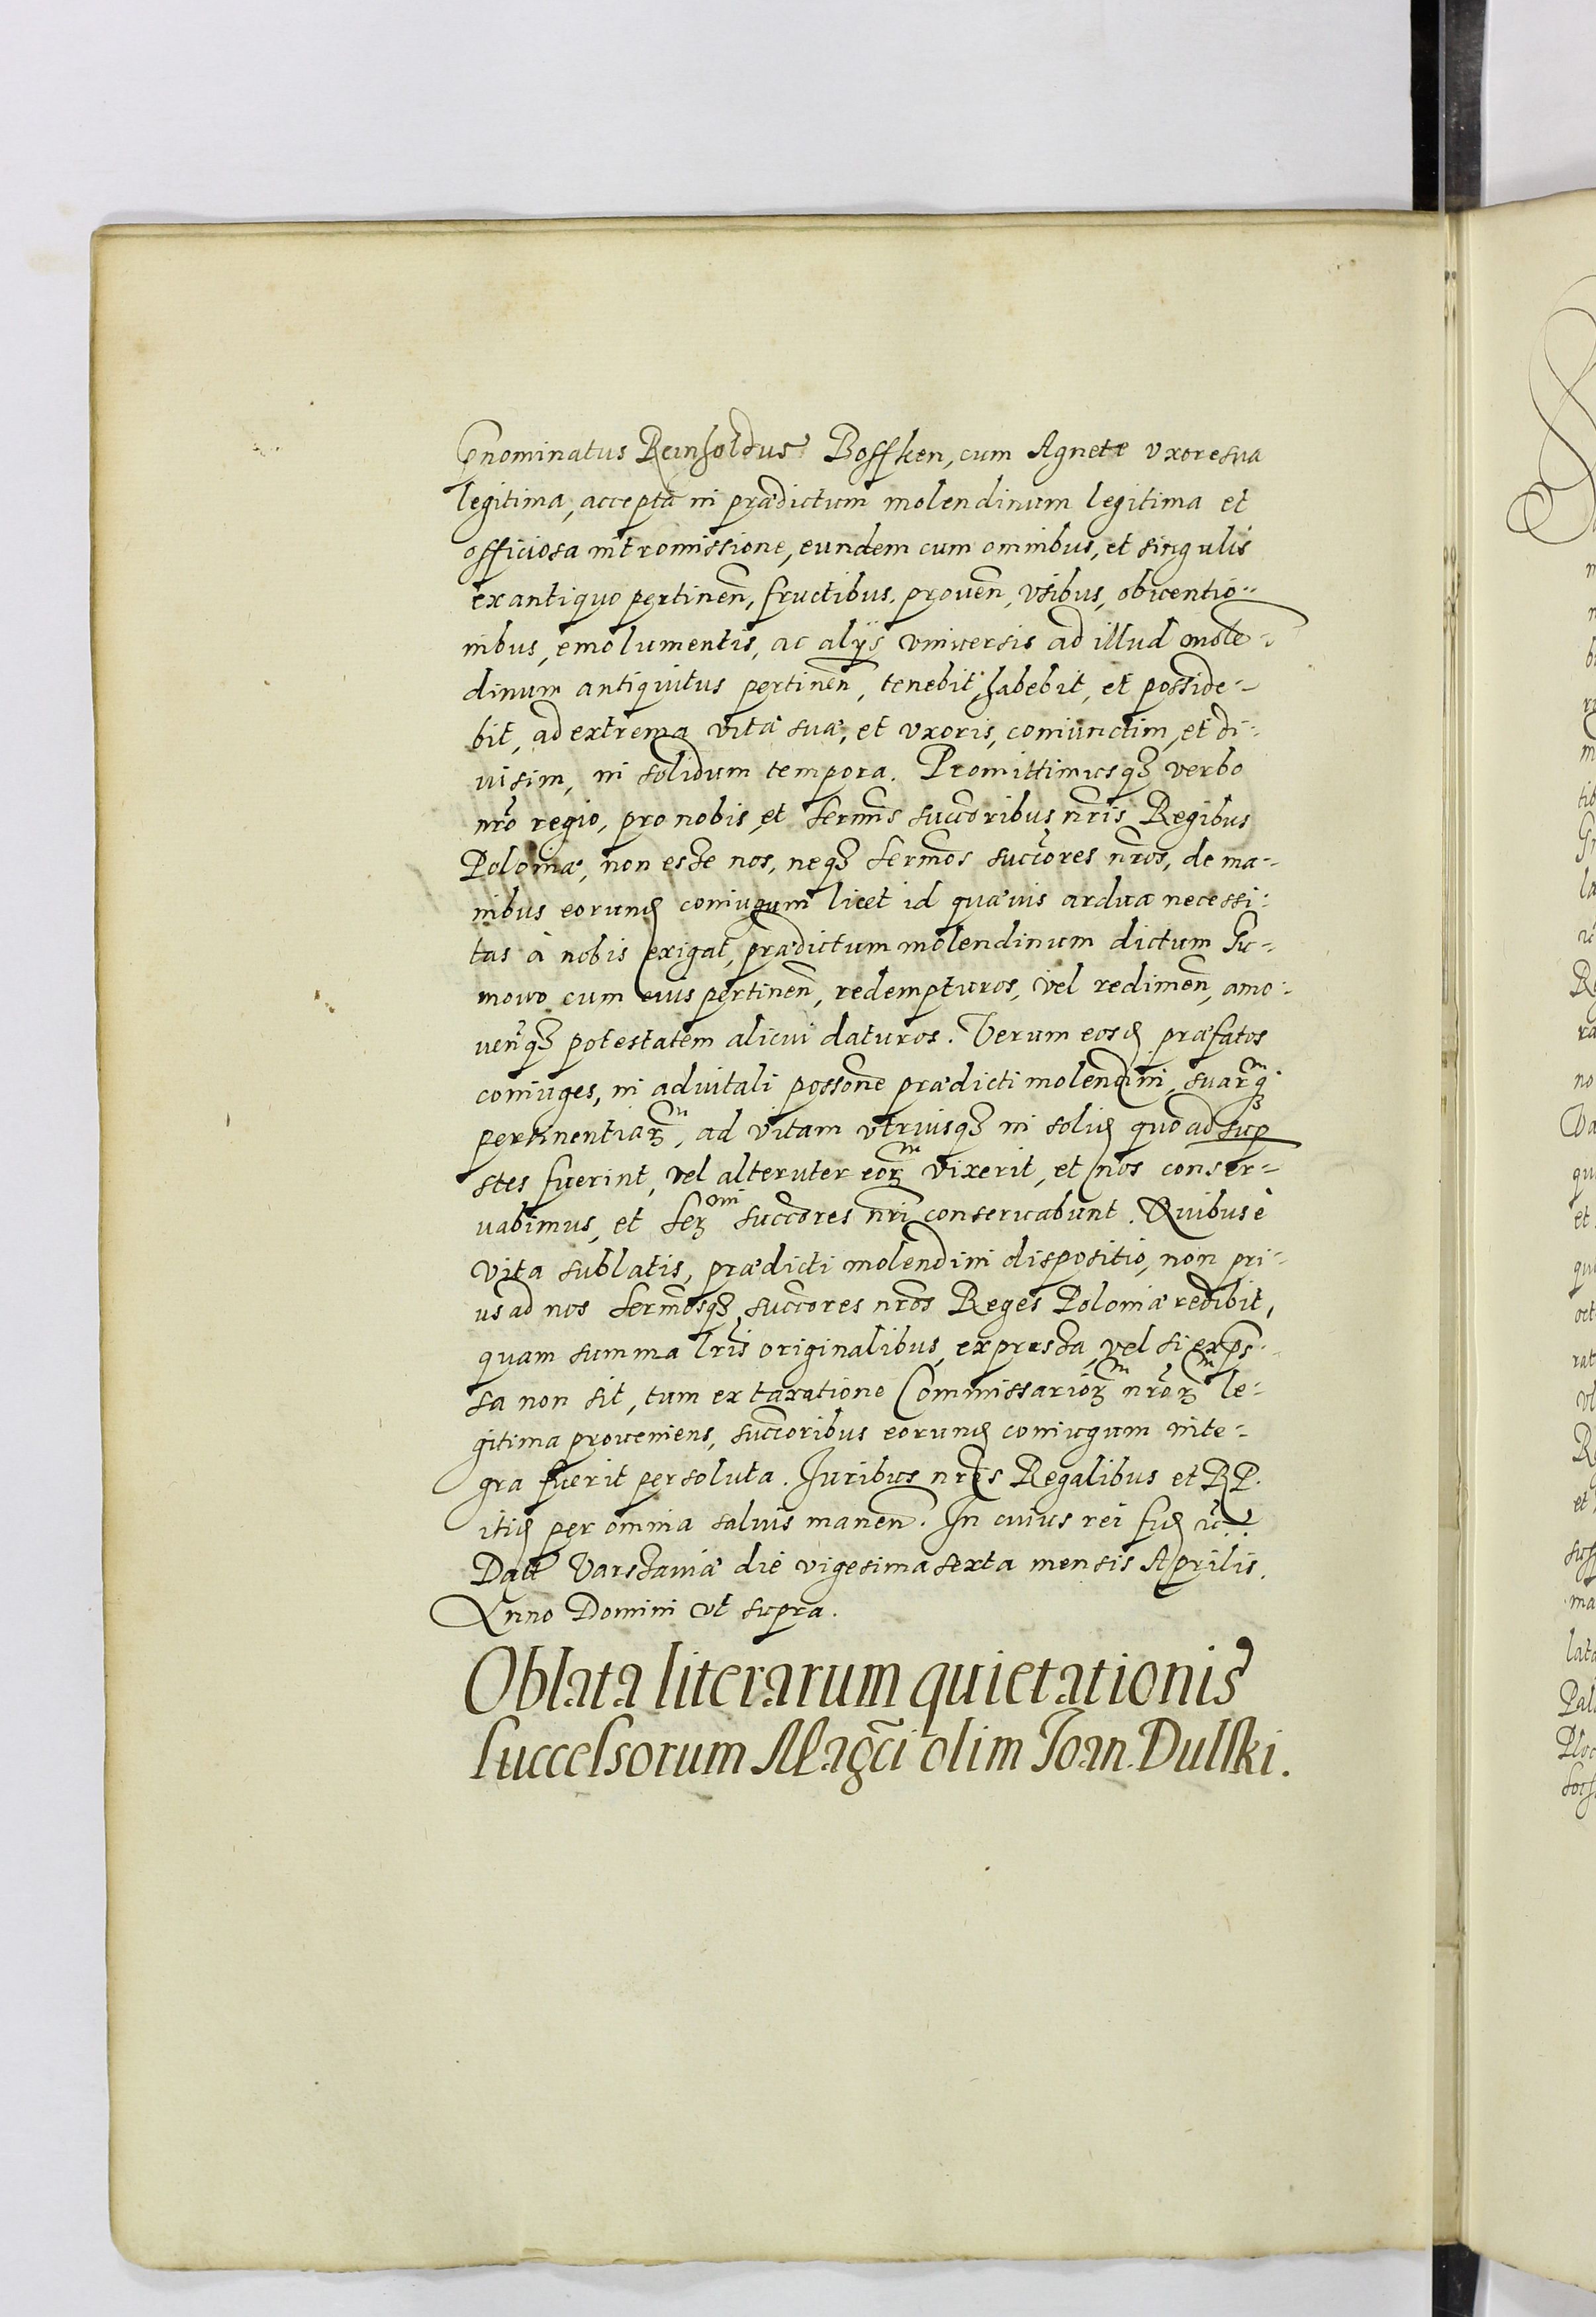 Pnominatus Reinholdus Boffken, cum Agnete vxore sua
legitima, accepta in prædictum molendinum legitima et
officiosa intromissione, eundem cum omnibus, et singulis
ex antiquo pertinen̄, fructibus, prouen̄, vsibus, obuentio-
nibus, emolumentis, ac alijs vniuersis ad illud mole-
dinum antiquitus pertinen̄, tenebit, habebit, et posside-
bit, ad extrema vitæ suæ, et vxoris, coniunctim, et di-
uisim, in solidum tempora. Promittimusqꝫ verbo
nr̄o regio, pro nobis et Serm̄is succ̄oribus nr̄is Regibus
Poloniæ, non esse nos, neqꝫ Serm̄os succ̄ores nr̄os, de ma-
nibus eorund̨ coniugum licet id quæuis ardua necessi-
tas à nobis exigat, prædictum molendinum dictum Gu-
mowo cum eius pertinen̄, redempturos, vel redimen̄, amo-
uen̄qꝫ potestatem alicui daturos. Verum eosd̨ præfatos
coniuges, in aduitali poss̄one prædicti molendini, suarꝫmqꝫ
pertinentiarꝫm, ad vitam vtriusqꝫ in solid̨ quoad sup
stes fuerint, vel alteruter eorꝫm vixerit, et nos conser-
uabimus, et Serꝫmi succ̄ores nr̄i conseruabunt. Quibus è
vita sublatis, prædicti molendini dispositio, non pri-
us ad nos Serm̄osqꝫ succ̄ores nr̄os Reges Poloniæ redibit,
quam summa lr̄is originalibus, expressa, vel si exps-
sa non sit, tum ex taxatione Commissariorꝫm nr̄orꝫm le-
gitima proueniens, succ̄oribus eorund̨ coniugum inte-
gra fuerit persoluta. Iuribus nr̄is Regalibus et R P.
itid̨ per omnia saluis manen̄. In cuius rei fid̨ ꝛc̄
Datt Varssauiæ die vigesima sexta mensis Aprilis.
Anno Domini vt supra.
Oblata literarum quietationis
successorum Magc̄i olim Ioan. Dulski.